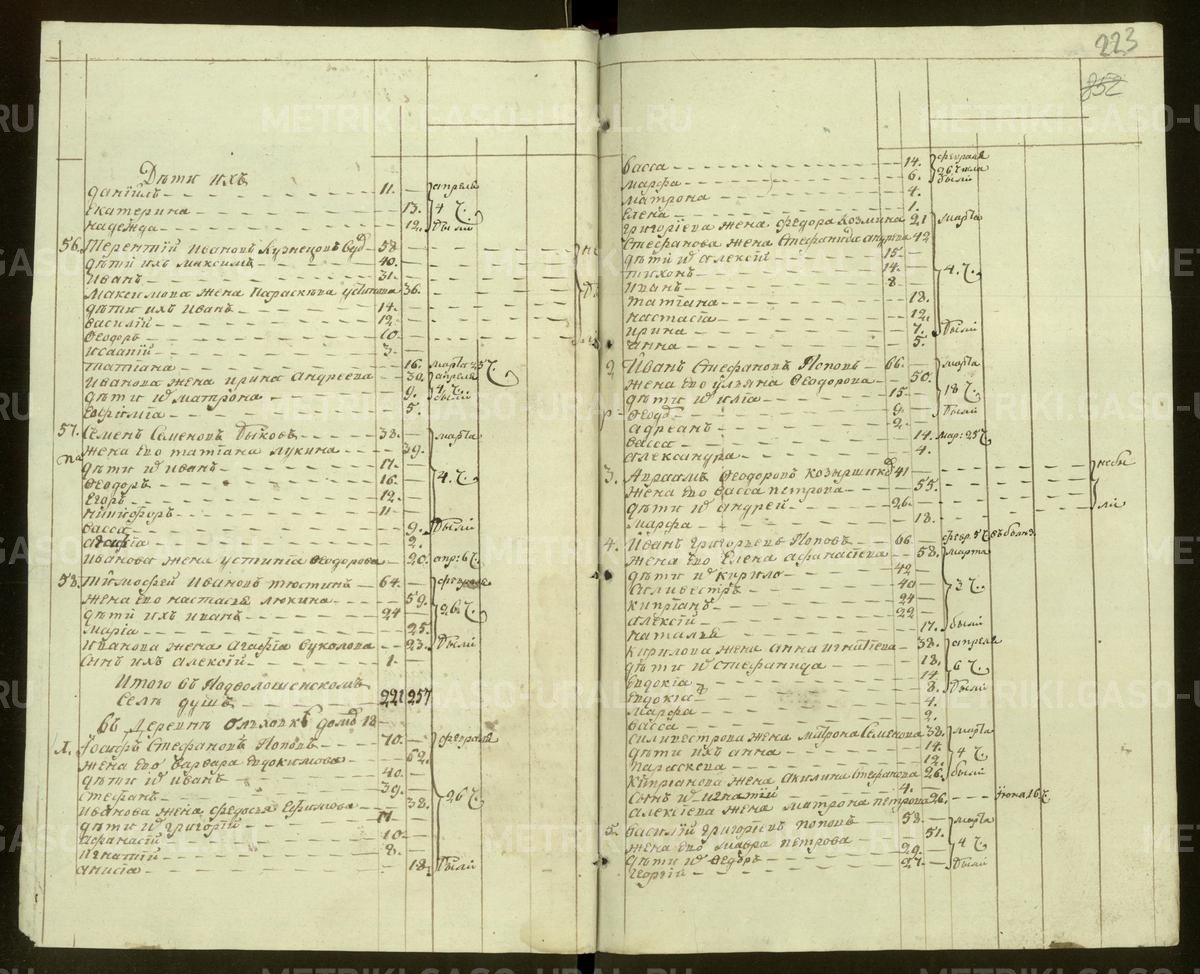 223
252
Дѣти ихъ
Данiилъ 11.
Екатерина 13.
Надежда 12.
апрель 4 Ч. были
56. Терентiй Ивановъ Кузнецовъ 58
Дѣти ихъ Максимъ 40.
Иванъ 31.
Максимова жена Параскѣва Устинова 36.
Дѣти ихъ Иванъ 14.
Василiй 12.
Ѳеодоръ 10
Исаакiй 3.
Татiана 16. марта 25 Ч.
Иванова жена Ирина Андреева 30. апреля
Дѣти и Матрона 9. 4. Ч.
Евфимiа 5. были
57. Семенъ Семеновъ Быковъ 38. марта
Жена его Татiана Лукина 39.
Дѣти и Иванъ 17.
Ѳеодоръ 16. 4. Ч.
Егоръ 12.
Никифоръ 11
Васса 9. были
Агафiа 2.
Иванова жена Устинiа Ѳеодорова 20. апр: 6 Ч.
58. Тимофей Ивановъ Тюстинъ 64. февраля
Жена его Настасья Лукина 59.
Дѣти ихъ Иванъ 24 26. Ч.
Марiа 25.
Иванова жена Агафiа Вуколова 23. были
Сынъ ихъ Алексiй 1.
Итого въ Подволошенскомъ
селѣ душъ 221 257
Въ деревнѣ Ольховкѣ домъ 12
1. Iосифъ Стефановъ Поповъ 70. февраля
Жена его Варвара Евдокимова 62.
Дѣти и Иванъ 40.
Стефанъ 39. 26 Ч.
Иванова жена Федосья Ефимова 38.
Дѣти и Григорiй 17
Афанасiй 10
Игнатiй 8.
Анисiа 18. были
Васса 14. февраля
Марфа 6. 26 Ч. были
Матрона 4.
Елена 1.
Григорiева жена Федора Козмина 21 марта
Стефанова жена Стефанида Андреева 42
Дѣти и Алексiй 15.
Тихонъ 14. 4. Ч.
Иванъ 8
Татiана 18.
Настасiа 12.
Ирина 7. были
Анна 5.
2 Иванъ Стефановъ Поповъ 66. марта
Жена его Ульяна Ѳеодорова 50.
Дѣти и Илiа 15. 18 Ч.
Ѳеодоръ 9. были
Адреанъ 2.
Васса 14. мар: 25 Ч.
Александра 4.
3. Авраамъ Ѳеодоровъ 41 небы
Жена его Васса Петрова 55.
Дѣти и Андрей 26. ли
Марфа 18.
4. Иванъ Григорьевъ Поповъ 66 февр. 5 Ч.
Жена его Елена Афанасiева 58. марта
Дѣти и Кирило 42
Силивестръ 40 3 Ч.
Кипрiанъ 24
Алексiй 22
Наталья 17. были
Кирилова жена Анна Игнатiева 38. апреля
Дѣти и Стефанида 18. 6 Ч.
Евдокiа 14
Евдокiа 8. были
Марфа 4.
Васса 2.
Силивестрова жена Матрона Семенова 38. марта
Дѣти ихъ Анна 14. 4 Ч.
Параскева 12.
Кипрiанова жена Акилина Стефанова 26. были
Сынъ и Игнатiй 4.
Алексiева жена Матрона Петрова 26. iюня 16 Ч.
5. Василiй Григорiевъ Поповъ 58. марта
Жена его Мавра Петрова 51.
Дѣти и Ѳедоръ 29. 4 Ч.
Георгiй 27. были
METRIKI.GASO-URAL.RU